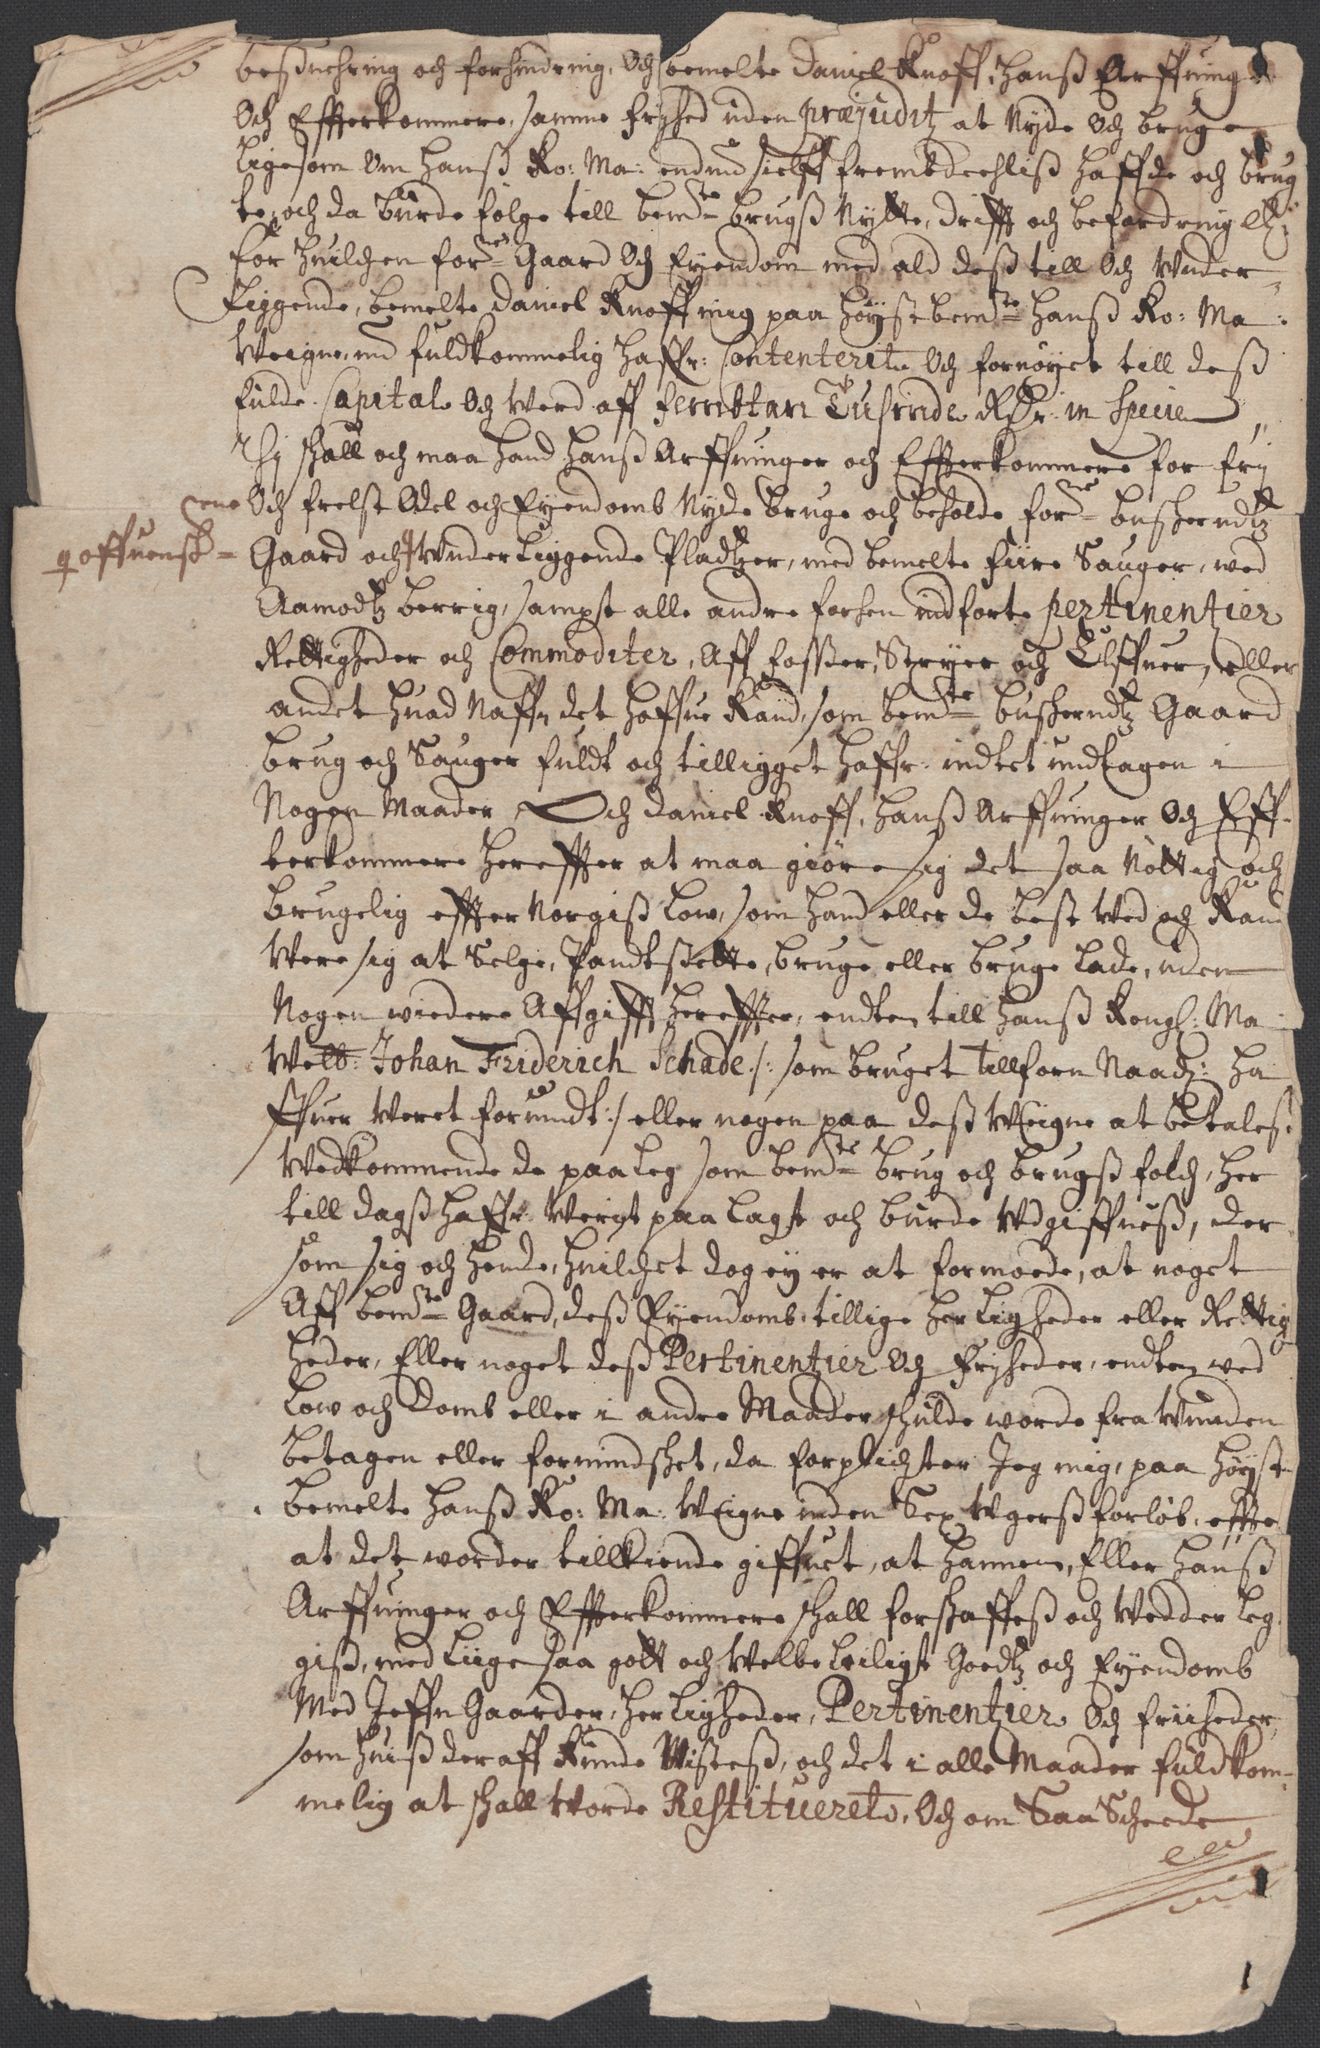 besuehring och forhindring, Och bemelte Daniel Knoff, hanß Arffuing
Och Effterkommere, samme fryhed uden præjuditz at Nyde Och bruge
Ligesom Om hanß Ko: Ma: endnu sielff frembdeehliß haffde och brug
te, och da burde følge till bemte brugß Nytte, drifft och befordring etc:
for huilchen forne Gaard Och Eyendom med ald deß till Och Under
Liggende, bemelte Daniel Knoff mig paa høystbemte hanß Ko: Ma:
Weigne, nu fuldkommelig haffr: Contenterit Och fornøyet till deß
fulde Capital Och Werd aff femtan Tusinde Rdr: in Specie,
Thj schall och maa hand hanß Arffuinger och Effterkommere for fry
Och frelst Odel och Eyendomb Nyde bruge och beholde forne buscherudtz
q offuensk=ene
Gaard och Underliggende Pladtzer, med bemelte fiire Sauger, wed
Aamodtz berrig, sampt alle andre forhen indførte pertinentier
Rettigheder och Commoditer, Aff Fosser, Stryer och Elffuer, eller
andet huad Naffn det haffue Kand, som bemte buscherudtz Gaard
brug och Sauger fuldt och tilligget haffr: indtet undtagen i
Nogen Maader, Och Daniel Knoff, hanß Arffuinger Och Eff-
terkommere hereffter at maa giøre sig det saa Nøttig och
brugelig effter Norgiß Low, som hand eller de best Wed och Kand
Were sig at Selge, Pandtsette, bruge eller bruge Lade, uden
Nogen wiedere Affgifft hereffter, endten till hanß Kongl: Ma:
Welb: Johan Friderich Schade /: som bruget tillforn Naadl: ha
ffuer Weret forundt :/ eller nogen paa deß Weigne at betalest
Wedkommende de paaleg som bemte brug och brugß folch, her
till dagß haffr: Werit paa Lagt och burde Udgiffueß, der
som sig och hende, huilchet dog ey er at formoede, at noget
Aff bemte Gaard, deß Eyendomb, tillige herligheder eller Rettig
heder, Eller noget deß Pertinentier Och Fryheder, endten ved
Low och Domb eller i andre Maader schulde worde fra Wunden
betagen eller formindschet, da forplichter Jeg mig, paa høyst-
bemelte hanß Ko: Ma: Weigne inden Sex Ugerß forløb, effter
at det worder tillkiende giffuet, at hannem, Eller hanß
Arffuinger och Effterkommere schall forschaffeß och Wedder leg
giß, med Liige saa gott och Welbeleiligt Goedtz och Eyendomb
Med Jeffn Gaarder, herligheder, Pertinentier Och friiheder,
som huiß der aff Kunde Misteß, och det i alle Maader fuldkom-
melig at schall Worde Restitueret, Och om Saa Scheede